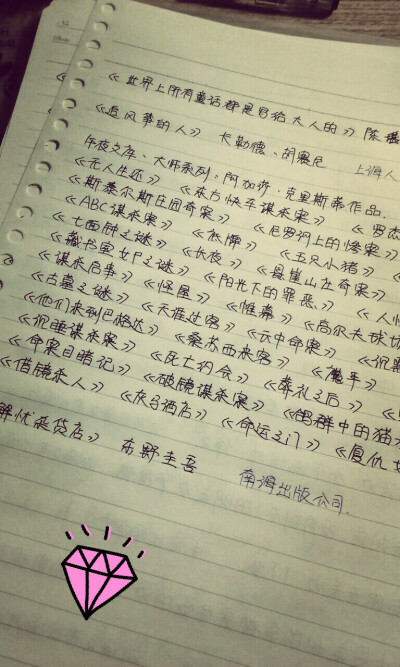 《世界上所有童话都是写给大人的》 陈
《追风筝的人》 卡勒德·胡赛尼 上海人
午夜文库·大师系列：阿加莎·克里斯蒂作品.
《无人生还》 《东方快车谋杀案》 《罗杰
《斯泰尔斯庄园奇案》 《尼罗河上的惨案》
《ABC谋杀案》 《底牌》 《五只小猪》 《
《七面钟之谜》 《长夜》 《悬崖山庄奇案》
《藏书室女尸之谜》 《阳光下的罪恶》 《人
《谋杀启事》 《怪屋》 《帷幕》 《高尔夫球
《古墓之谜》 《天涯过客》 《云中命案》 《沉
《他们来到巴格达》 《葬礼之后》 《魔手》
《沉睡谋杀案》 《死亡约会》 《鸽群中的猫》
《命案目睹记》 《破镜谋杀案》 《命运之门》 《复仇女
《借镜杀人》 《灰马酒店》
解忧杂货店》 东野圭吾 南海出版公司.